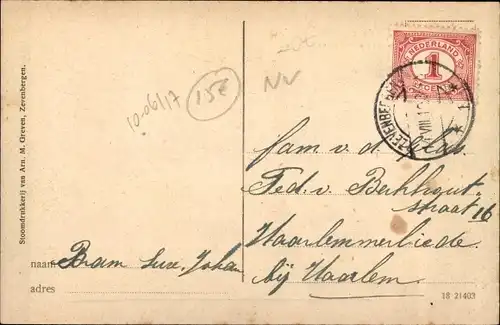 Stoomdrukkerij van Arn. M. Greven, Zevenbergen.
10-06/17
15€
NV
NEDERLAND
1
ZEVENBERGEN
VIII
Fam v. d. Clas.
Ted. v. Berkhout-
straat 16
Haarlemmerliede.
bij Haarlem.
naam Bram Suze, Johan
adres
18 21403